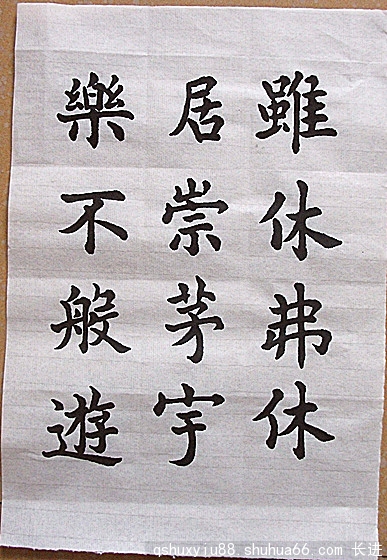 雖休弗休
居崇茅宇
樂不般遊
qshuxyju88 shuhua66.com 长进